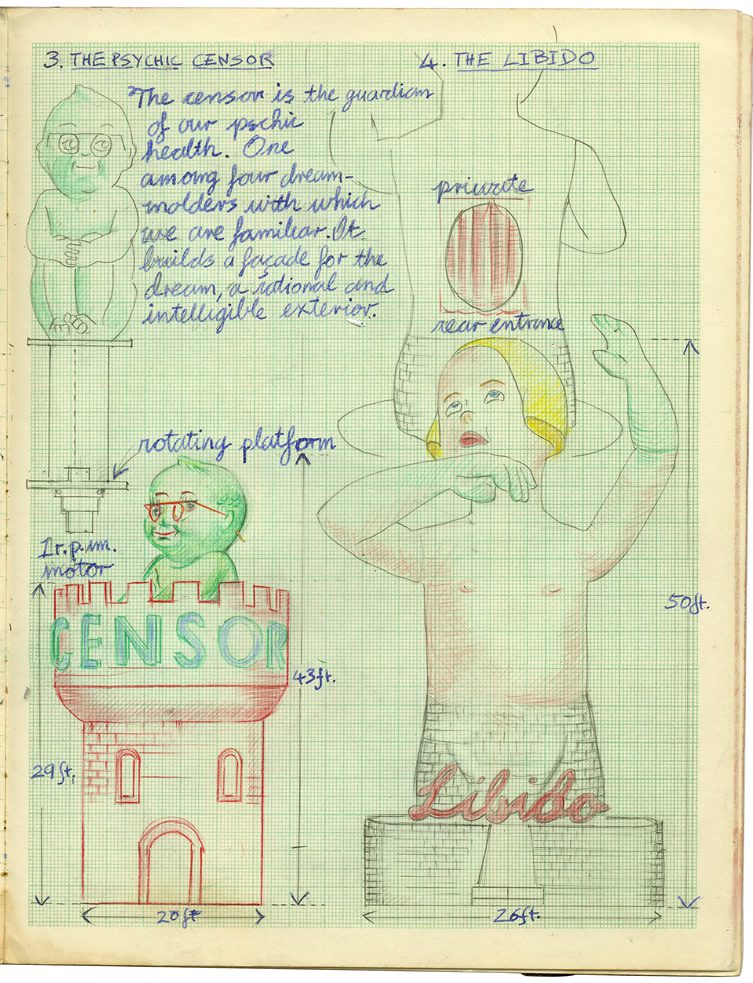 3. THE PSYCHIC CENSOR
The censor is the guardian
of our pschic
health. One
among four dream-
molders with which
we are familiar. It
builds a façade for the
dream, a rational and
intelligible exterior.
rotating platform
1 r.p.m.
motor
CENSOR
43ft.
29ft.
20ft
4. THE LIBIDO
private
rear entrance
50ft.
Libido
26ft.